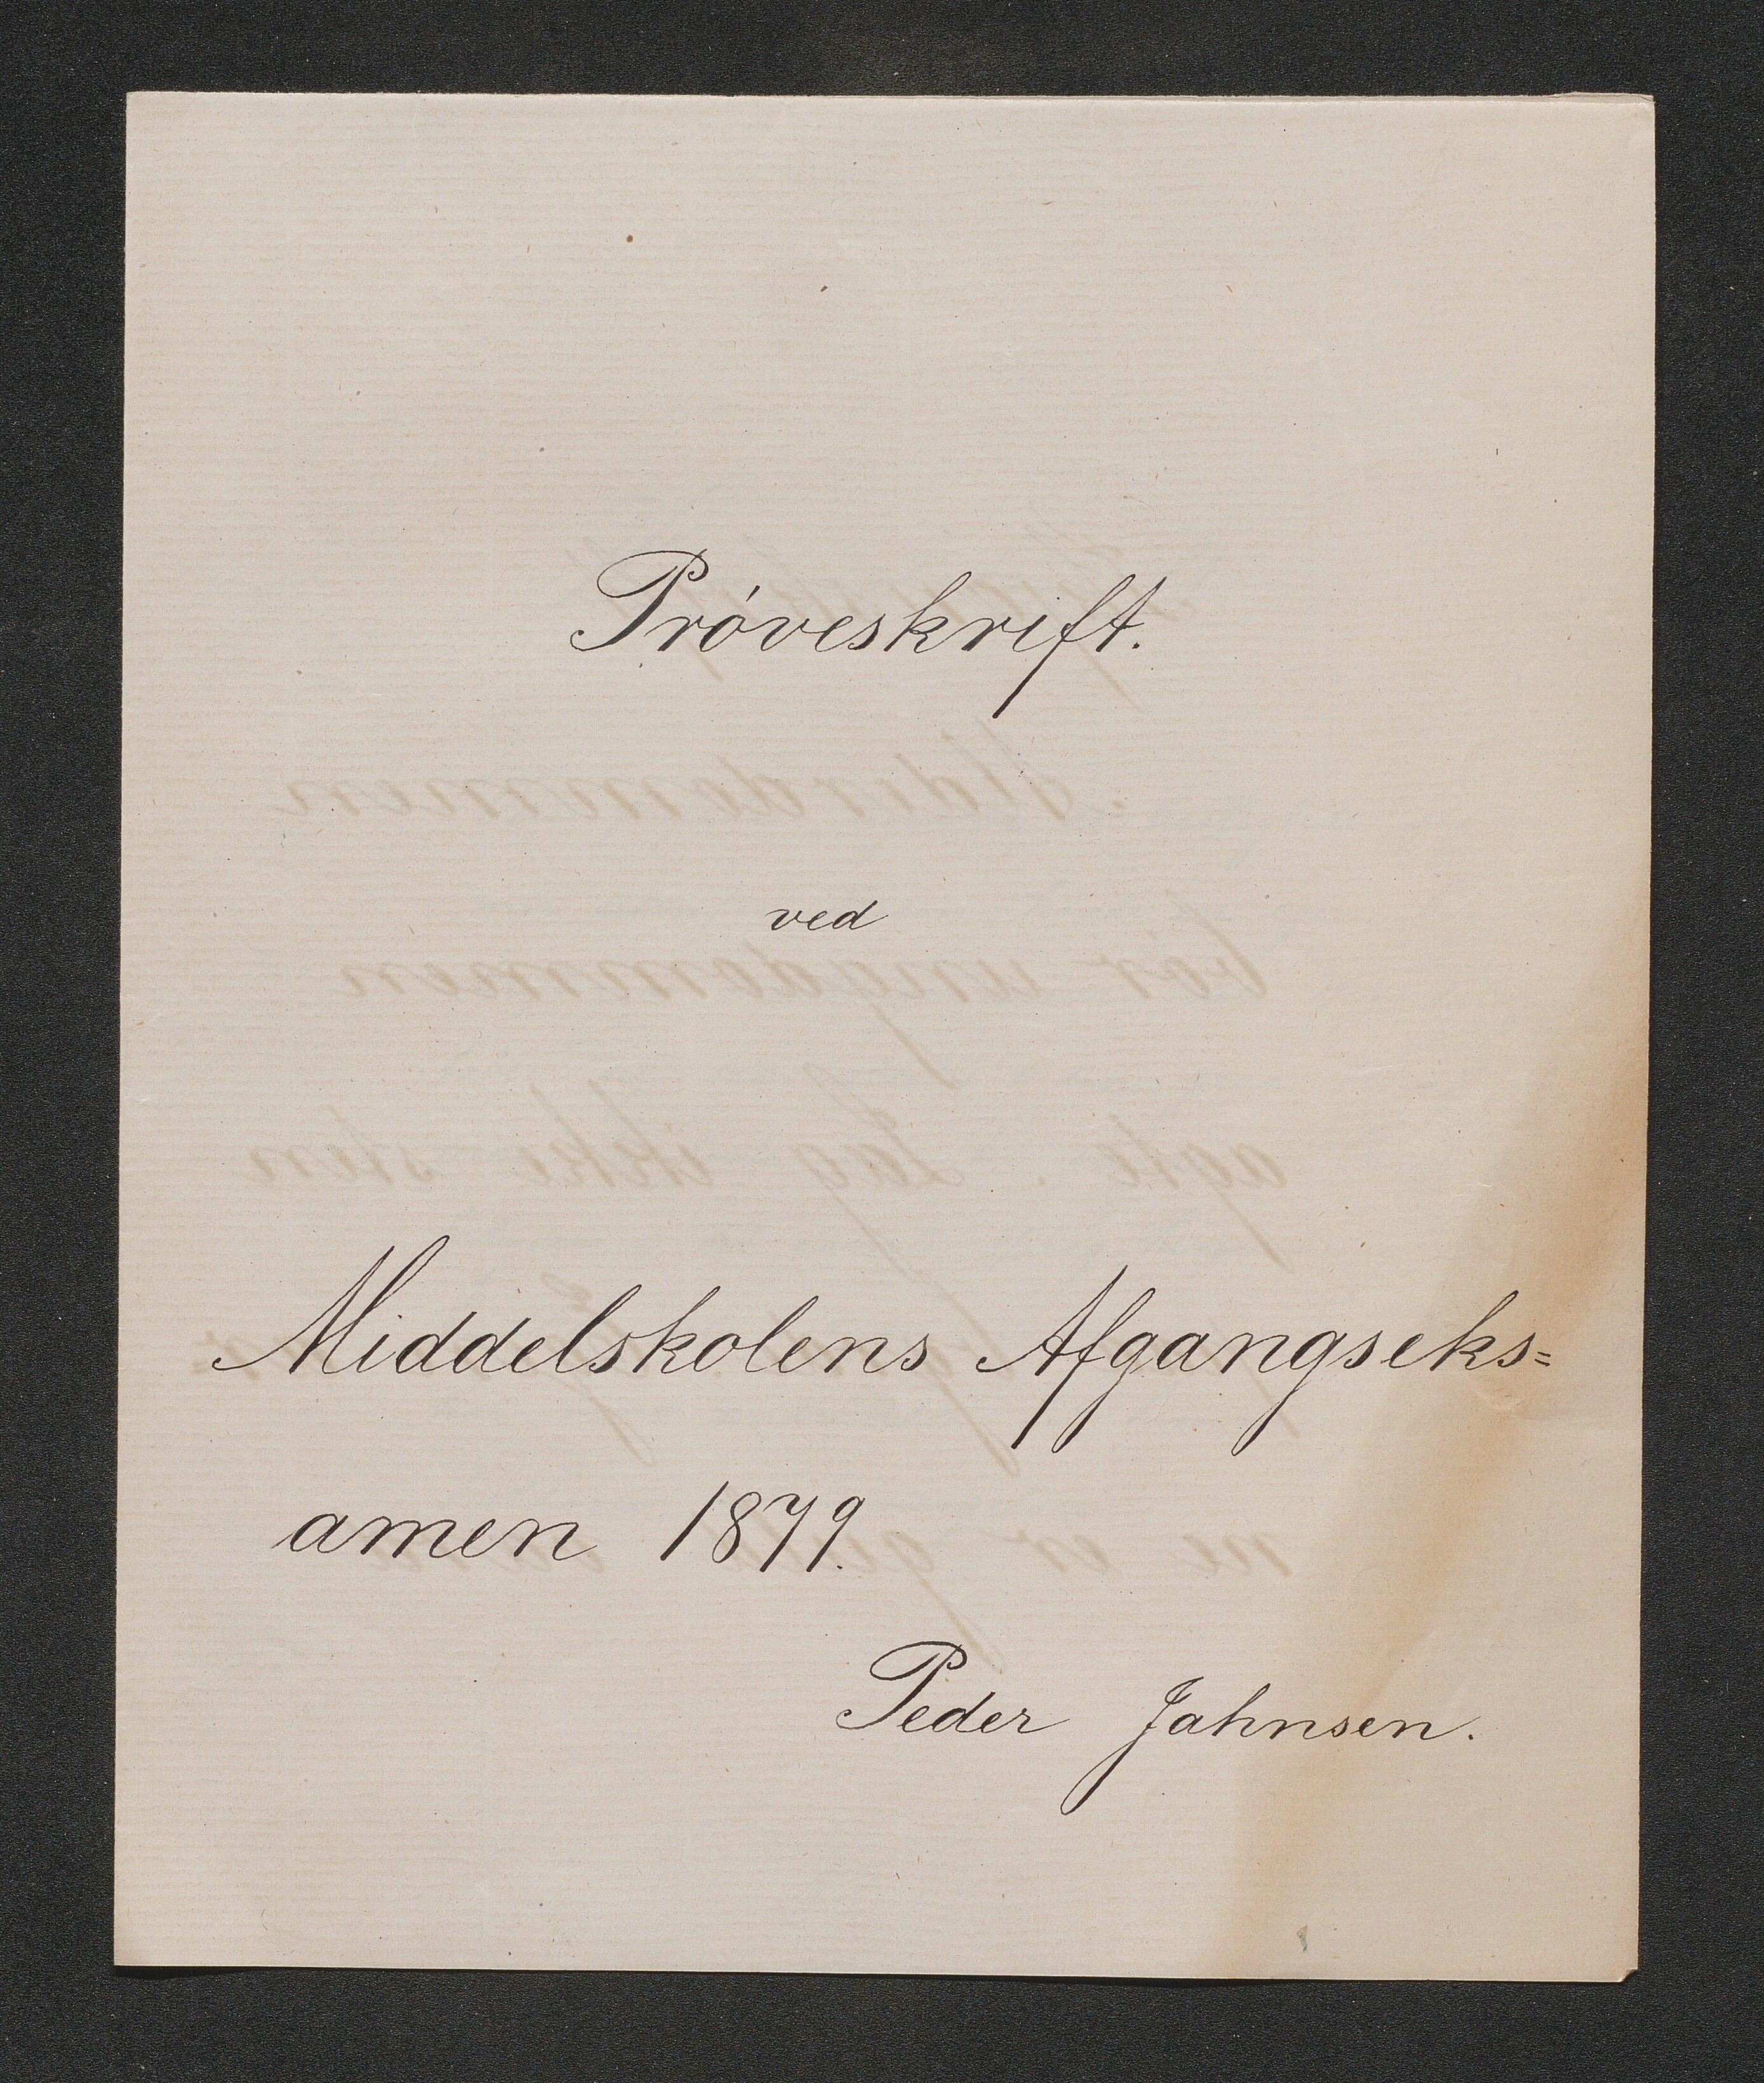 Próveskrift.
ved
Middelskolens Afgangseks=
amen 1879.
Peder Jahnsen.